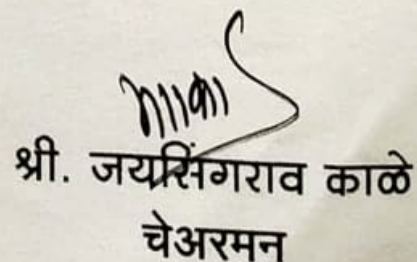 श्री. जयसिंगराव काळे
चेअरमन